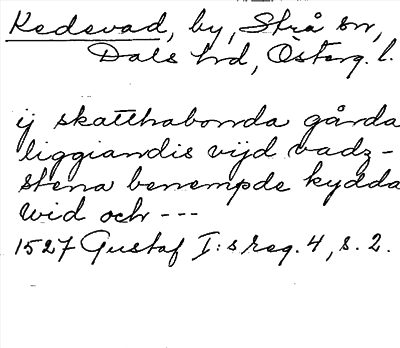 Kedevad, by, Strå sn,
Dals hd, Österg. l.
ij skatthabonda gårda
liggiandis vijd vadz-
stena benempde kydda
wid och ---
1527 Gustaf I:s reg. 4, s. 2.